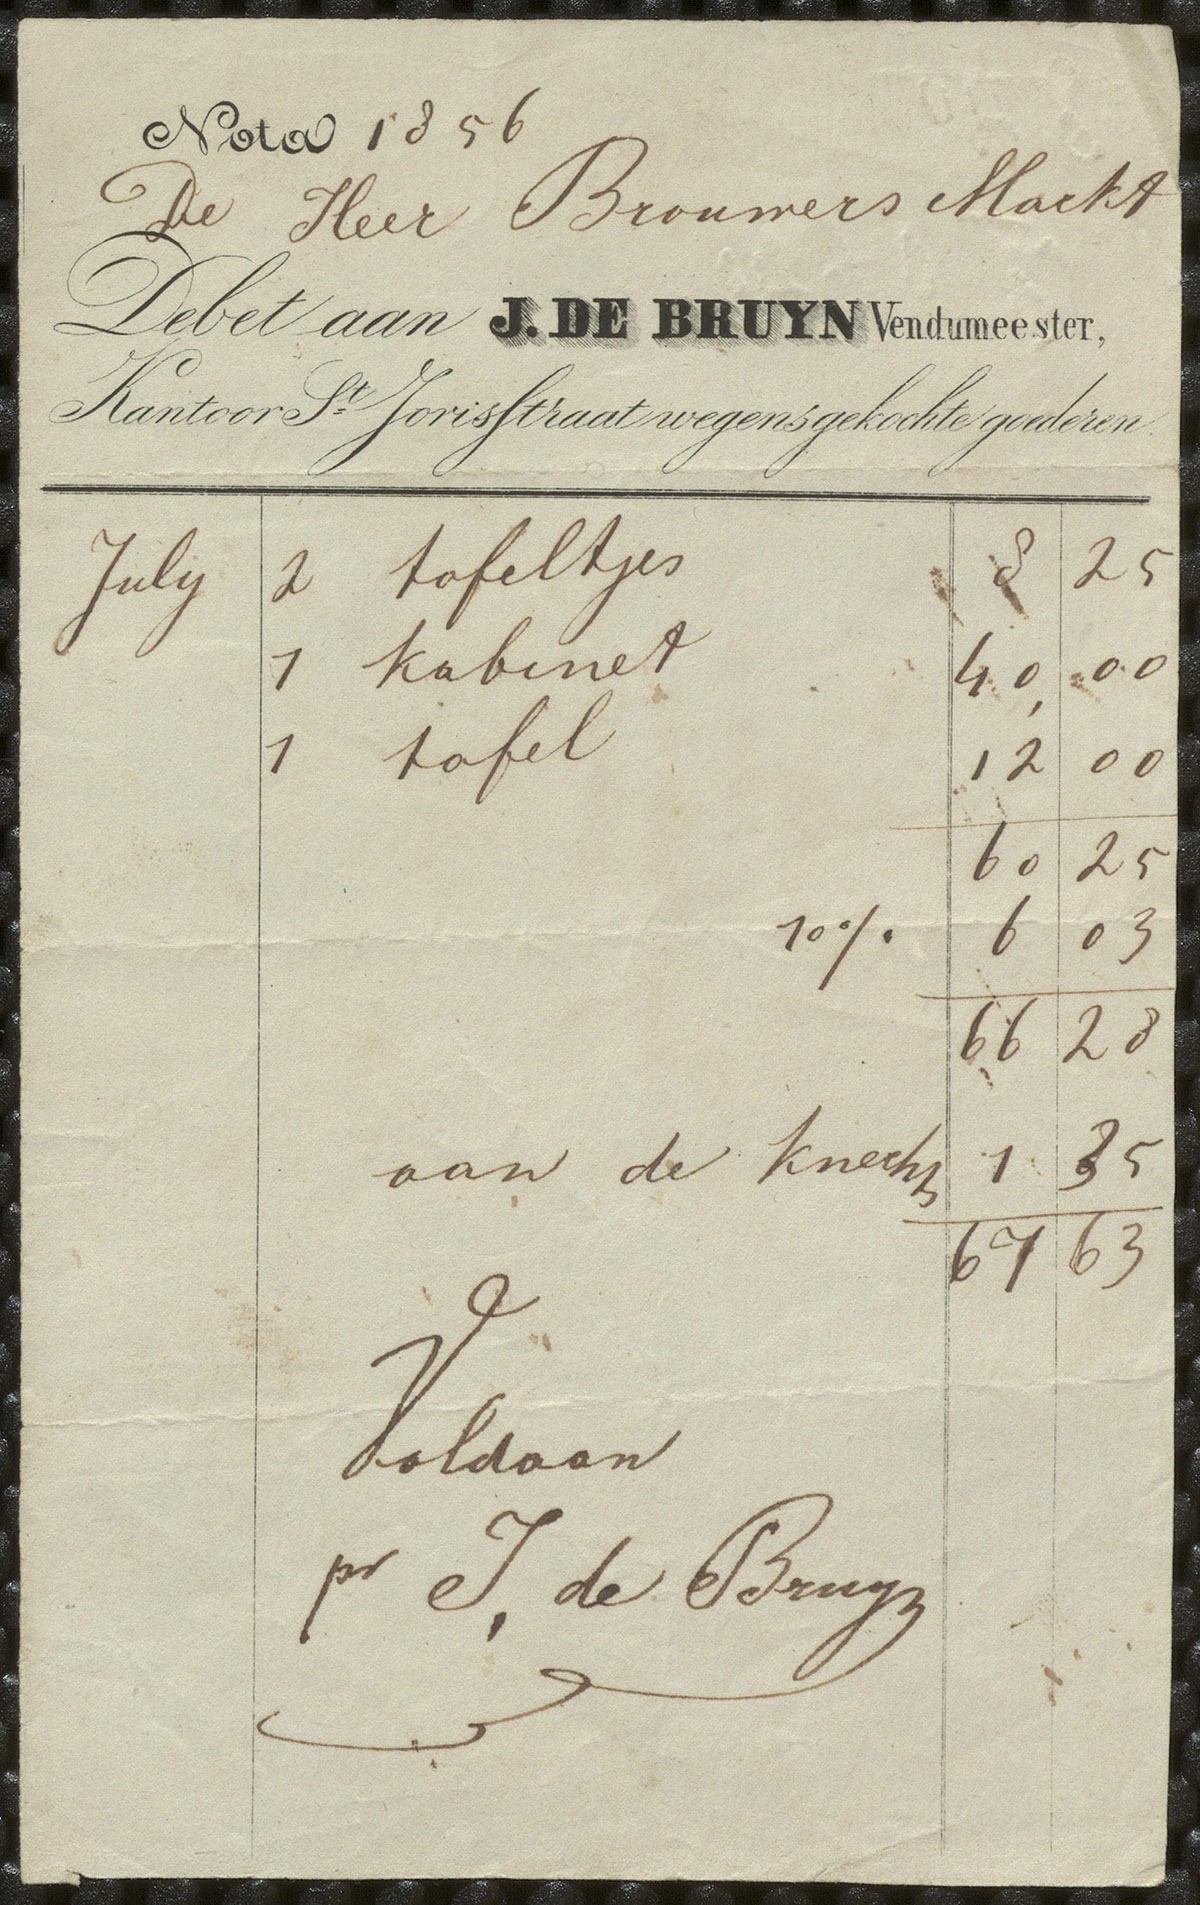 Nota 1856
De Heer Brouwers Markt
Debet aan J. DE BRUYN Vendumeester,
Kantoor St. Jorisstraat wegens gekochte goederen.
July 2 tafeltjes 8 25
1 kabinet 40, 00
1 tafel 12 00
60 25
10% 6 03
66 28
aan de knechts 1 35
67 63
Voldaan
pr J, de Bruyn